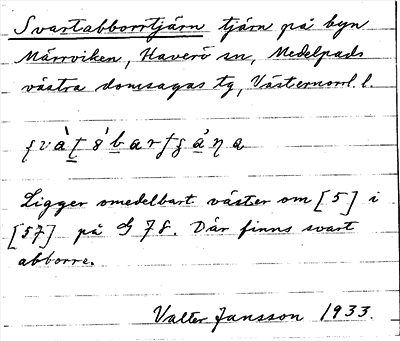 Svartabborrtjärn tjärn på byn
Märrviken, Haverö sn, Medelpads
västra domsagas tg, Västernorrl. l.
Ligger omedelbart väster om [5] i
[57] på G 78. Där finns svart
abborre.
Valter Jansson 1933.